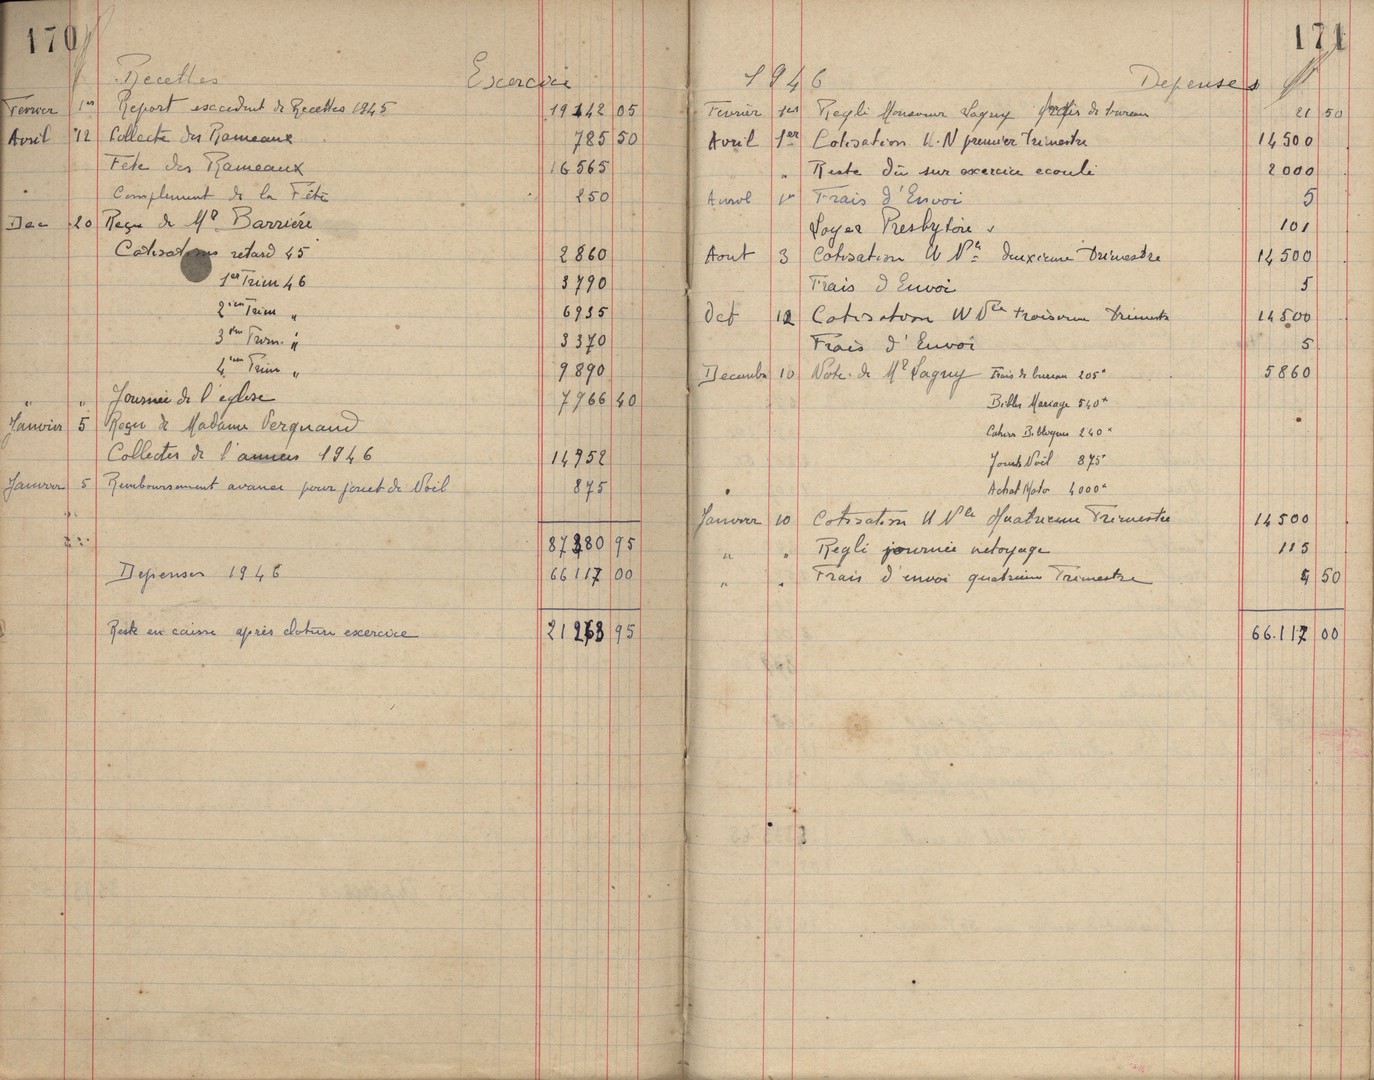 170
Recettes Exercice
Fevrier 1er Report excedent de Recettes 1945 19142 05
Avril 12 Collecte des Rameaux 785 50
Fête des Rameaux 16565
Complement de la Fête 250
Dec 20 Reçu de Mr Barrière
Cotisations retard 45 2860
1er Trim 46 3790
2iem Trim " 6935
3iem Trim. " 3370
4iem Trim " 9890
" " Journée de l'église 7966 40
Janvier 5 Reçu de Madame Vergnaud
Collectes de l'annees 1946 14952
Janvier 5 Remboursement avance pour jouet de Noël 875
87380 95
Depenses 1946 66117 00
Reste en caisse après cloture exercice 21263 95
171
1946 Depenses
Fevrier 1er Regli Monsieur Lagny frais de bureau 21 50
Avril 1er Cotisation U.N premier Trimestre 14500
" Reste dû sur exercice ecoulé 2000
Avril 1er Frais d'Envoi 5
Loyer Presbytère 101
Aout 3 Cotisation U Nle deuxieme Trimestre 14500
Frais d'Envoi 5
Oct 12 Cotisation U Nle troisieme Trimestre 14500
Frais d'Envoi 5
Decembre 10 Note de Mr Lagny Frais de bureau 205" 5860
Bibles Mariage 540"
Cahiers 240"
Jouets Noël 875"
Achat Moto 4000"
Janvier 10 Cotisation U Nle Quatrieme Trimestre 14500
" " Regli journée netoyage 115
" " Frais d'envoi quatrieme Trimestre 4 50
66.117 00